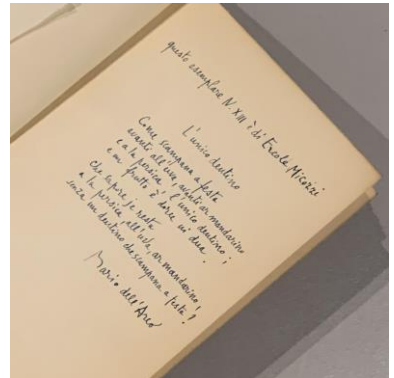 questo esemplare N. XIII è di Ercole Micozzi
L'unico dentino
Come scampana a festa
avanti all'uva, avanti ar mandarino
e a la persica, l'unico dentino;
e un frutto è dorce mi dua.
Che sapore je resta
a la persica, all'uva, ar mandarino,
senza un dentino che scampana a festa?
Mario dell'Arco